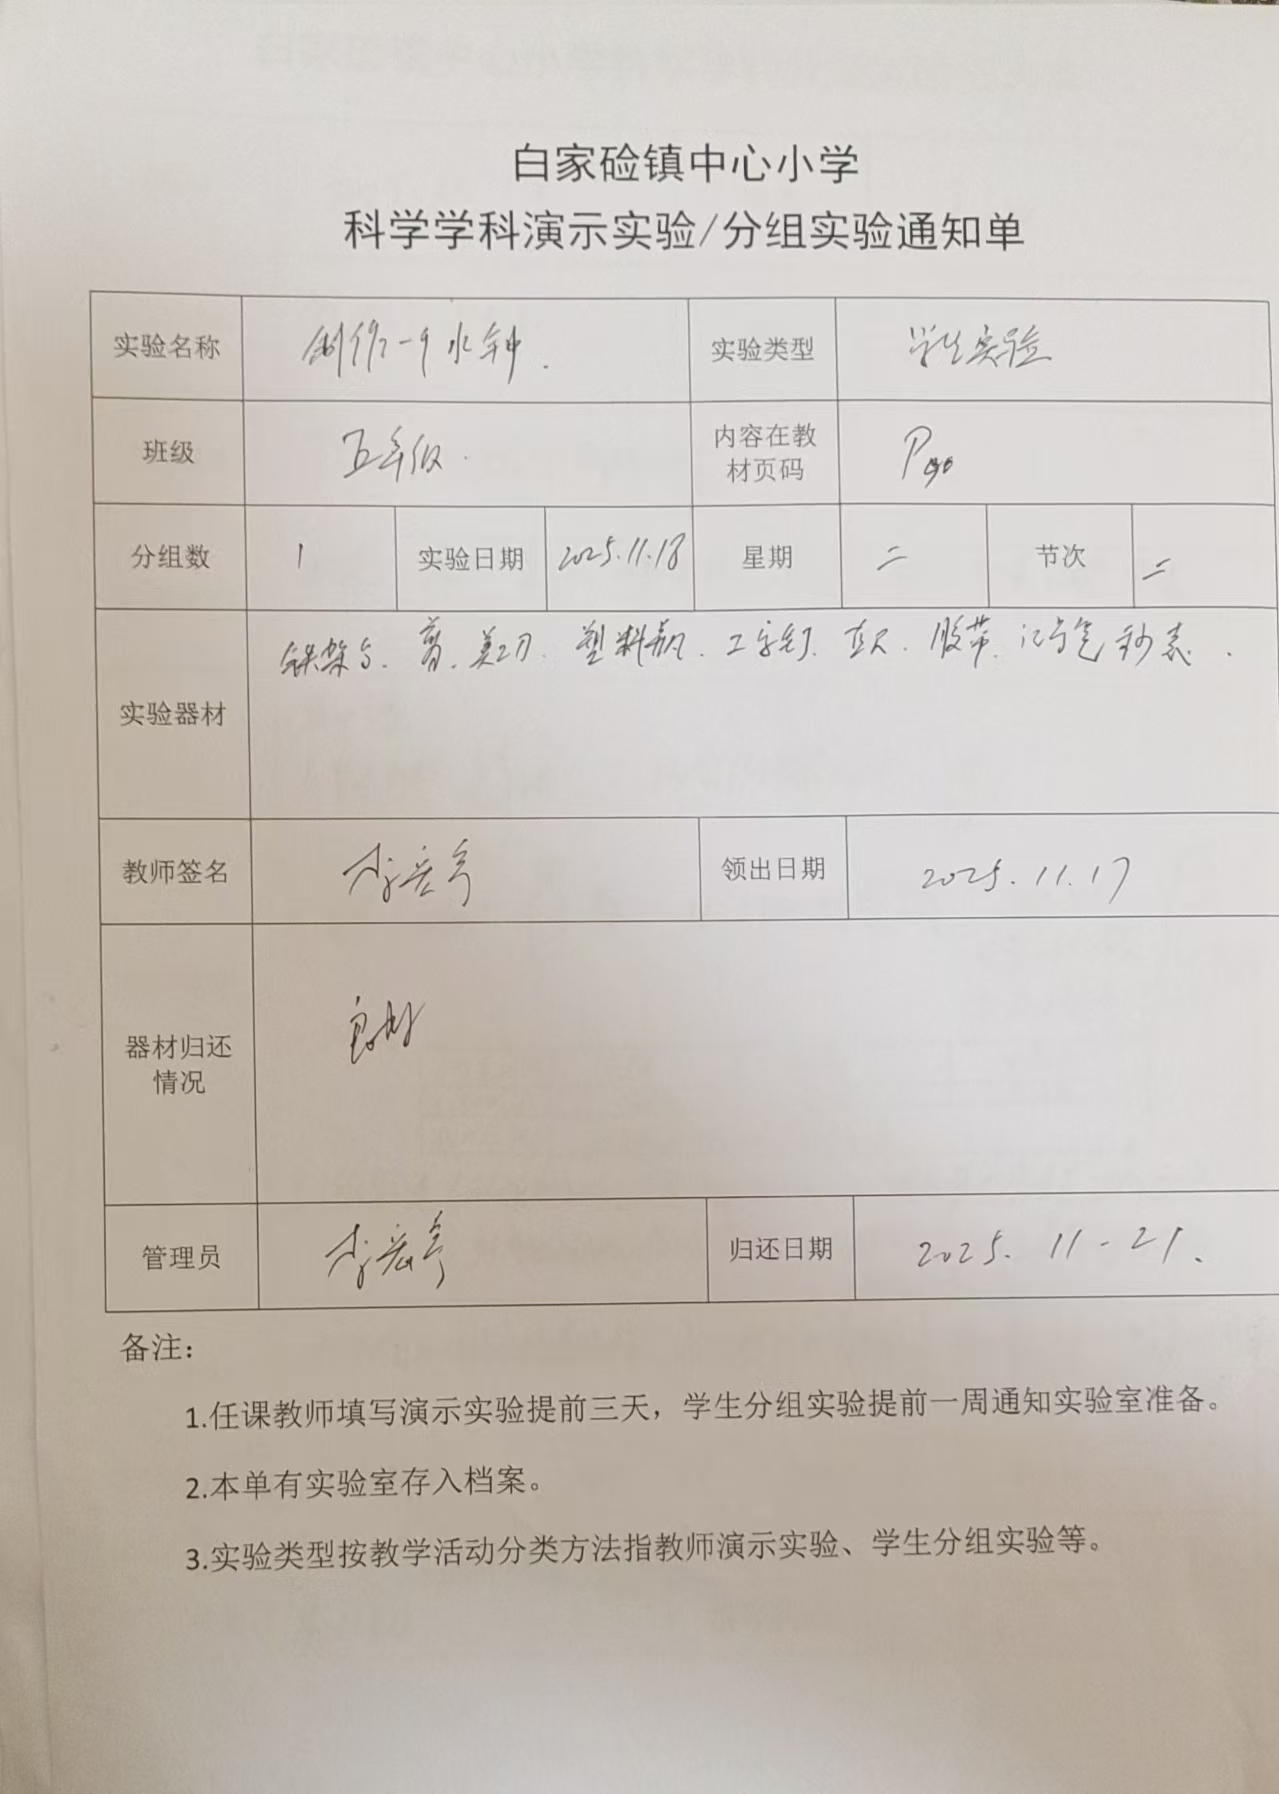 白家硷镇中心小学
科学学科演示实验/分组实验通知单
实验名称 制作一个水钟. 实验类型 学生实验
班级 五年级. 内容在教材页码 P
分组数 1 实验日期 2025.11.18 星期 二 节次 二
实验器材 铁架台、剪、美工刀、塑料瓶、工字钉、直尺、胶带、记号笔 秒表.
教师签名 李宏亭 领出日期 2025.11.17
器材归还情况 良好
管理员 李宏亭 归还日期 2025. 11-21.
备注:
1.任课教师填写演示实验提前三天，学生分组实验提前一周通知实验室准备。
2.本单有实验室存入档案。
3.实验类型按教学活动分类方法指教师演示实验、学生分组实验等。